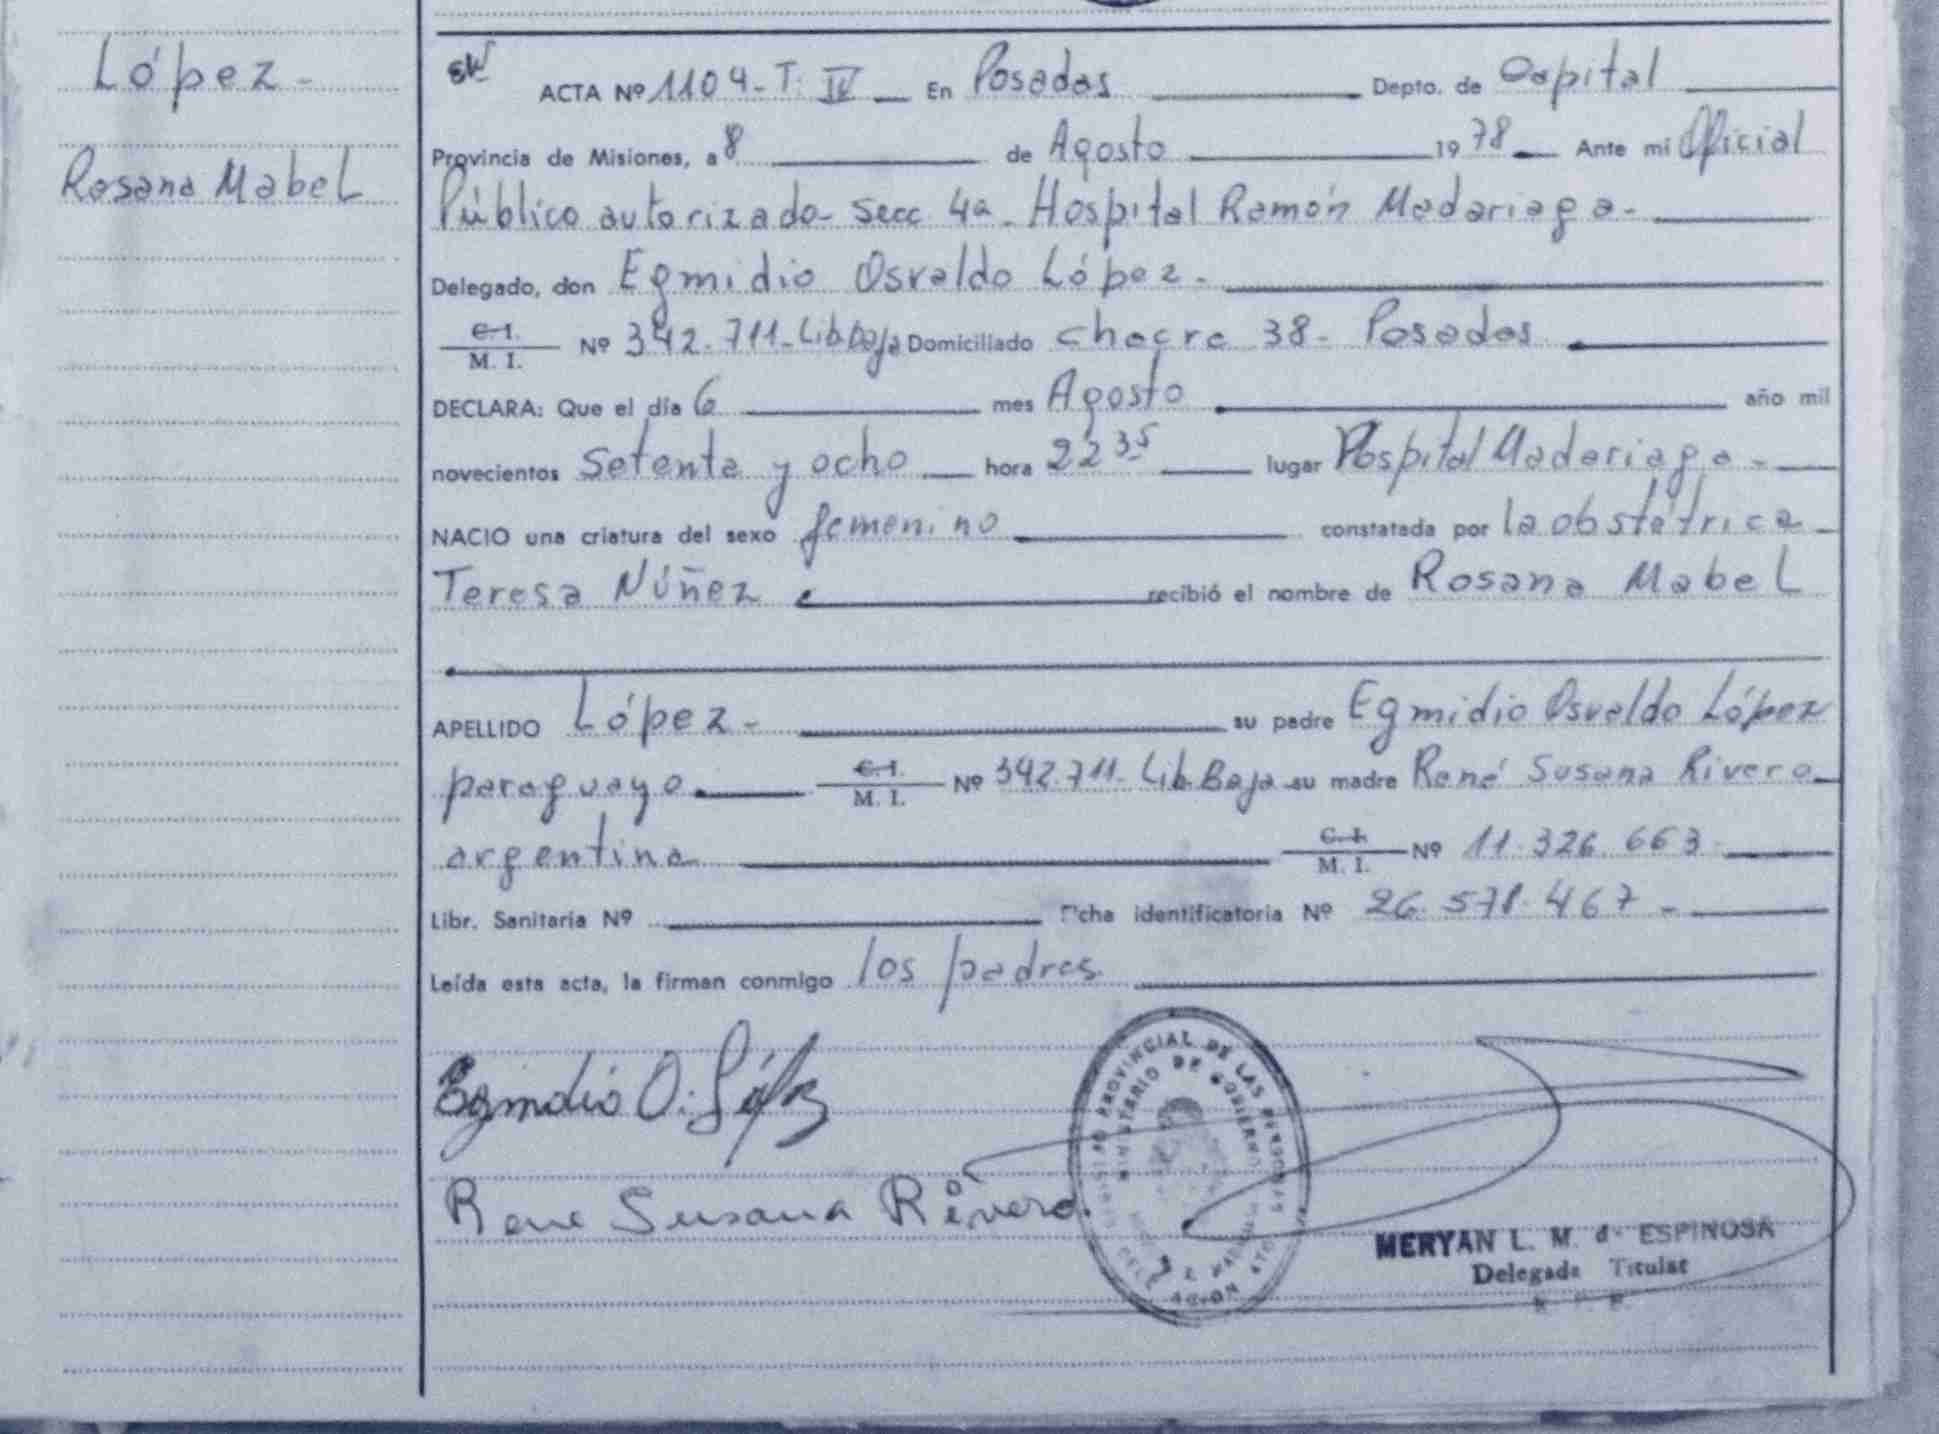 López-
Rosana Mabel
ACTA Nº 1104-T. IV En Posadas Depto. de Capital
Provincia de Misiones, a 8 de Agosto 1978 Ante mi Oficial
Público autorizado- Secc 4a- Hospital Ramón Madariaga-
Delegado, don Egmidio Osvaldo López-
C. I. / M. I. Nº 342.711-Lib.Baja Domiciliado Chacra 38- Posadas
DECLARA: Que el día 6 mes Agosto año mil
novecientos Setenta y ocho hora 22 35 lugar Hospital Madariaga-
NACIO una criatura del sexo femenino constatada por la obstétrica-
Teresa Núñez recibió el nombre de Rosana Mabel
APELLIDO López- su padre Egmidio Osvaldo López
paraguayo C. I. / M. I. Nº 342.711-Lib.Baja su madre René Susana Rivero
argentina C. I. / M. I. Nº 11.326.663
Libr. Sanitaria Nº Ficha identificatoria Nº 26.578.467-
Leída esta acta, la firman conmigo los padres
Egmidio O. López
Rene Susana Rivero
PROVINCIAL DE LAS PERSONAS
MINISTERIO DE GOBIERNO
MERYAN L. M. de ESPINOSA
Delegada Titular